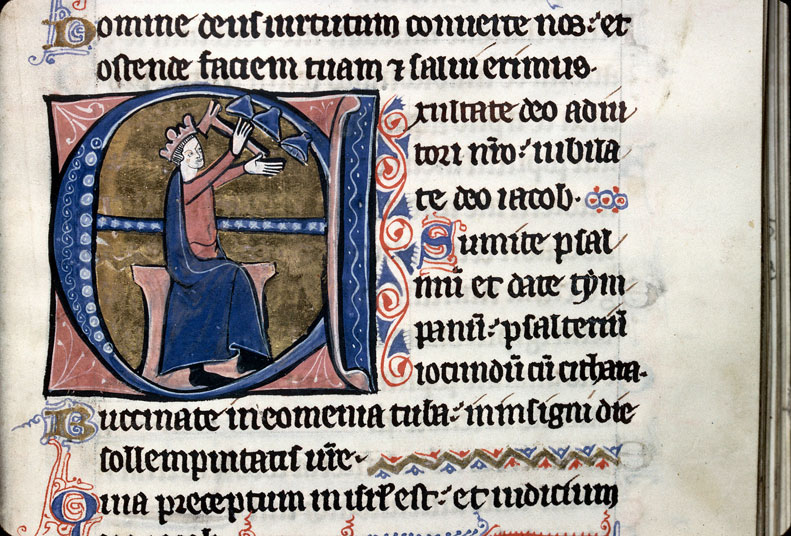 Domine deus uirtutum conuerte nos: et
ostende faciem tuam ⁊ salui erimus.
Exultate deo adiu
tori nr̄o: iubila
te deo iacob.
Sumite psal
mū et date tȳm
panū: psalteriū
iocundū cū cithara.
Buccinate in eomenia tuba: in insigni die
sollempnitatis ur̄e.
Quia preceptum in isrl̄ est: et iudicium